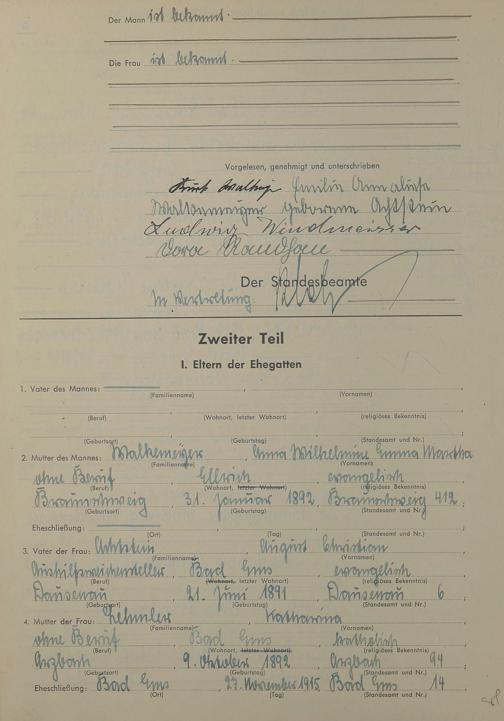 Der Mann ist bekannt.
Die Frau ist bekannt.
Vorgelesen, genehmigt und unterschrieben
Kurt Emilie Anneliese
Walkemeyer geborene Achtstein
Ludwig Windmeisser
Dora
Der Standesbeamte
In Vertretung:
Zweiter Teil
I. Eltern der Ehegatten
1. Vater des Mannes:
(Familienname) (Vornamen)
(Beruf) (Wohnort, letzter Wohnort) (religiöses Bekenntnis)
(Geburtsort) (Geburtstag) (Standesamt und Nr.)
2. Mutter des Mannes: Walkemeyer, Anna Wilhelmine Emma Martha
(Familienname) (Vornamen)
ohne Beruf, Ellrich, evangelisch
(Beruf) (Wohnort, letzter Wohnort) (religiöses Bekenntnis)
Braunschweig, 31. Januar 1892, Braunschweig 412
(Geburtsort) (Geburtstag) (Standesamt und Nr.)
Eheschließung:
(Ort) (Tag) (Standesamt und Nr.)
3. Vater der Frau: Achtstein, August Christian
(Familienname) (Vornamen)
Aushilfsweichensteller, Bad Ems, evangelisch
(Beruf) (Wohnort, letzter Wohnort) (religiöses Bekenntnis)
Dausenau, 21. Juni 1891, Dausenau 6
(Geburtsort) (Geburtstag) (Standesamt und Nr.)
4. Mutter der Frau: Lehmler Katharina
(Familienname) (Vornamen)
ohne Beruf, Bad Ems, katholisch
(Beruf) (Wohnort, letzter Wohnort) (religiöses Bekenntnis)
Arzbach, 9. Oktober 1892, Arzbach 94
(Geburtsort) (Geburtstag) (Standesamt und Nr.)
Eheschließung: Bad Ems, 27. November 1915, Bad Ems 14
(Ort) (Tag) (Standesamt und Nr.)